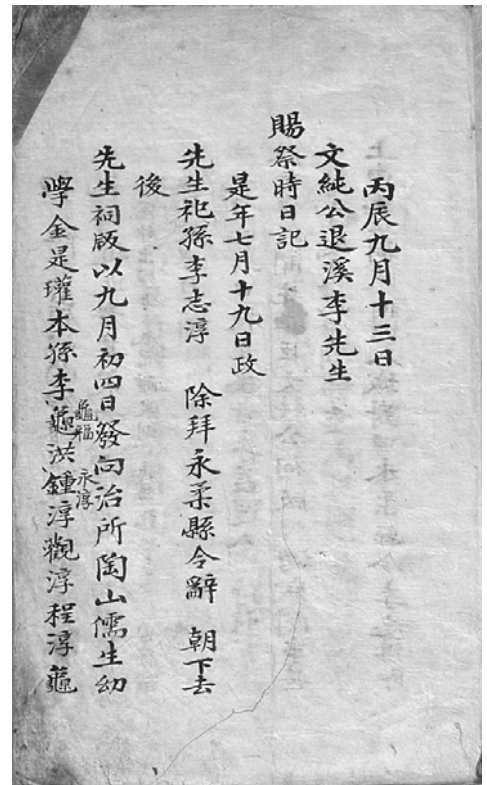 丙辰九月十三日
文純公退溪李先生
賜祭時日記
是年七月十九日政
先生祀孫李志淳 除拜永柔縣令辭 朝下去
後
先生祠版以九月初四日發向治所陶山儒生幼
龜福 永淳
學金是瓘本孫李龜洪鍾淳觀淳程淳龜